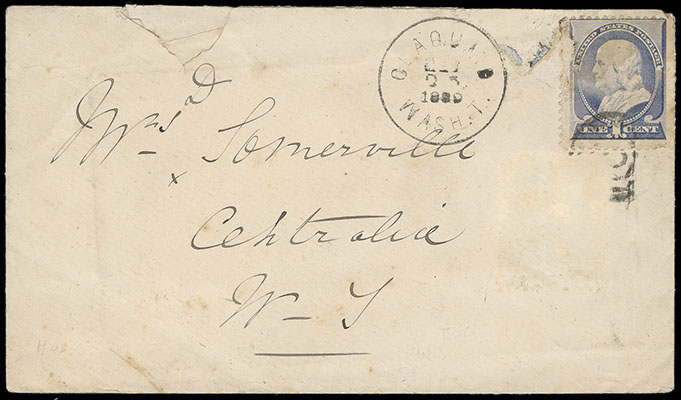 OLAQUA
WASH. T.
UNITED STATES POSTAGE
ONE CENT
Mrs D Somerville
Centralia
W T